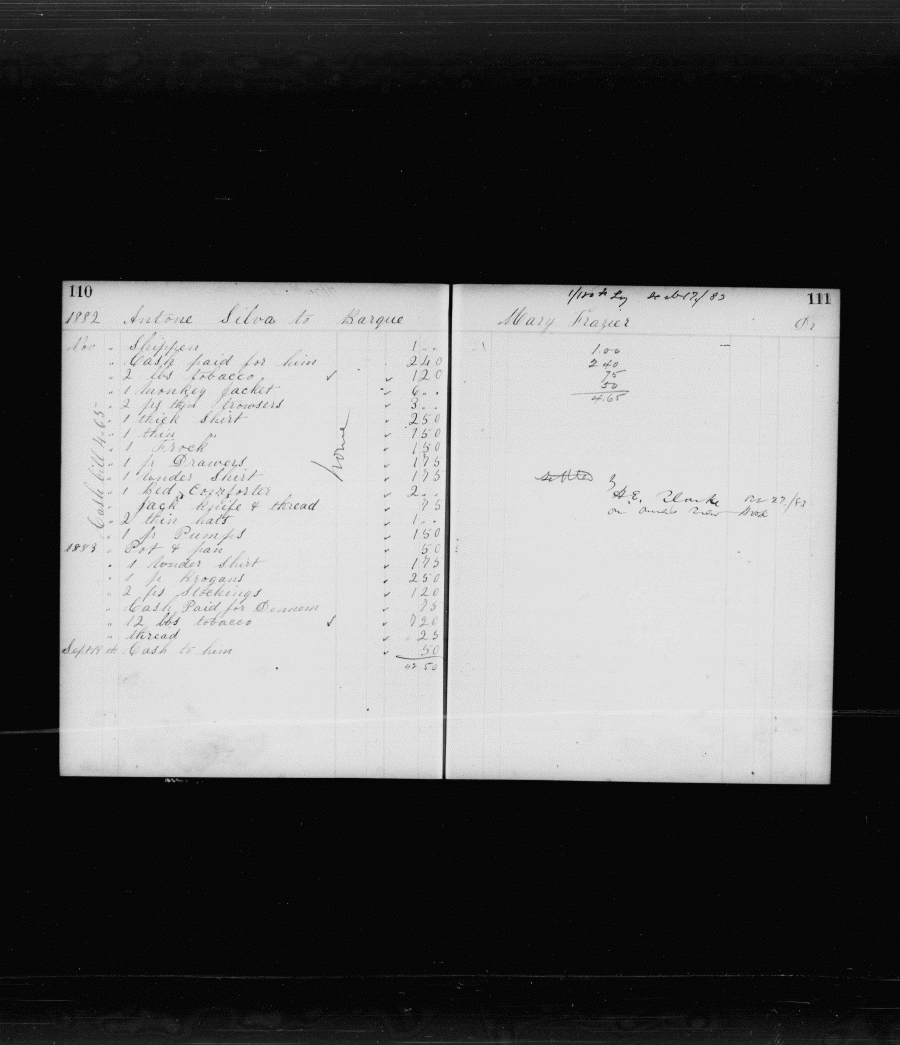 110
1882 Antone Silva to Barque
Nov " Shippen 1 . .
" Cash paid for him 2 40
" 2 lbs tobacco 1 20
" 1 Monkey Jacket 6 . .
" 2 prs thin trowsers 3 . .
" 1 thick Shirt 2 50
" 1 thin " 1 50
" 1 Frock 1 50
" 1 pr Drawers 1 75
" 1 Under Shirt 1 75
" 1 bed Comforter 2 . .
" Jack knife & thread 75
" 2 thin hats 1 . .
" 1 pr Pumps 1 50
1883 " Pot & pan 50
" 1 Under Shirt 1 75
" 1 pr Brogans 2 50
" 2 prs Stockings 1 20
" Cash Paid for
" 12 lbs tobacco 7 20
" thread 25
Sept 19 Cash to him 50
42 50
Cash bill 4.65
home
111
Mary Frazier Dr
1.00
2 40
75
50
4.65
settled by
A.E. Clarke 27/83
on new Book